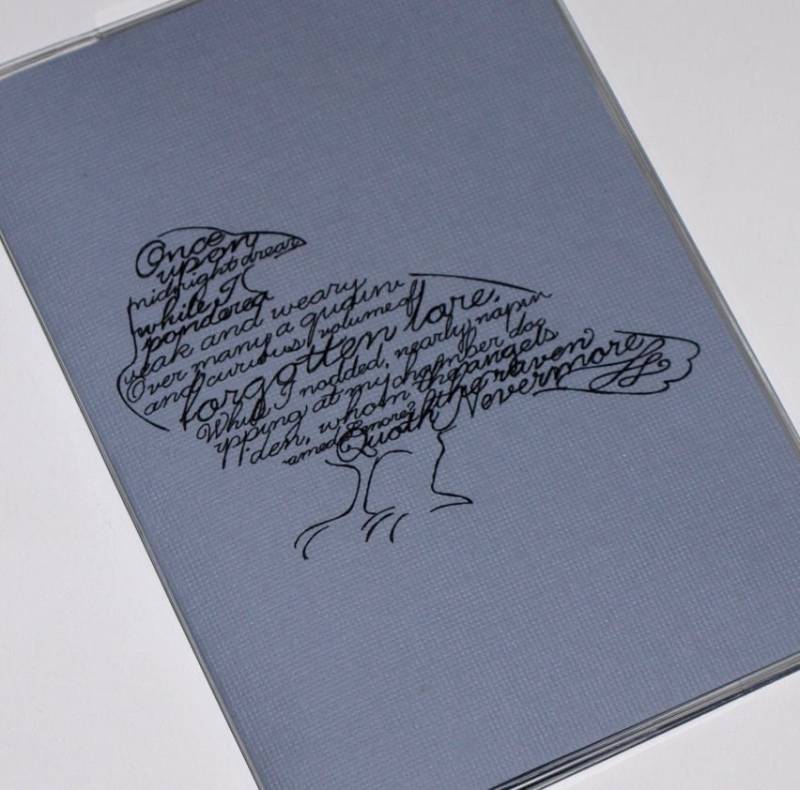 Once
upon
midnight drear
while I
pondered
weak and weary
Over many a qudint
and curious volume of
forgotten lore.
While I nodded, nearly napin
pping at my chamber doo
den, whom the angels
amed Lenore?
Quoth the raven
Nevermore